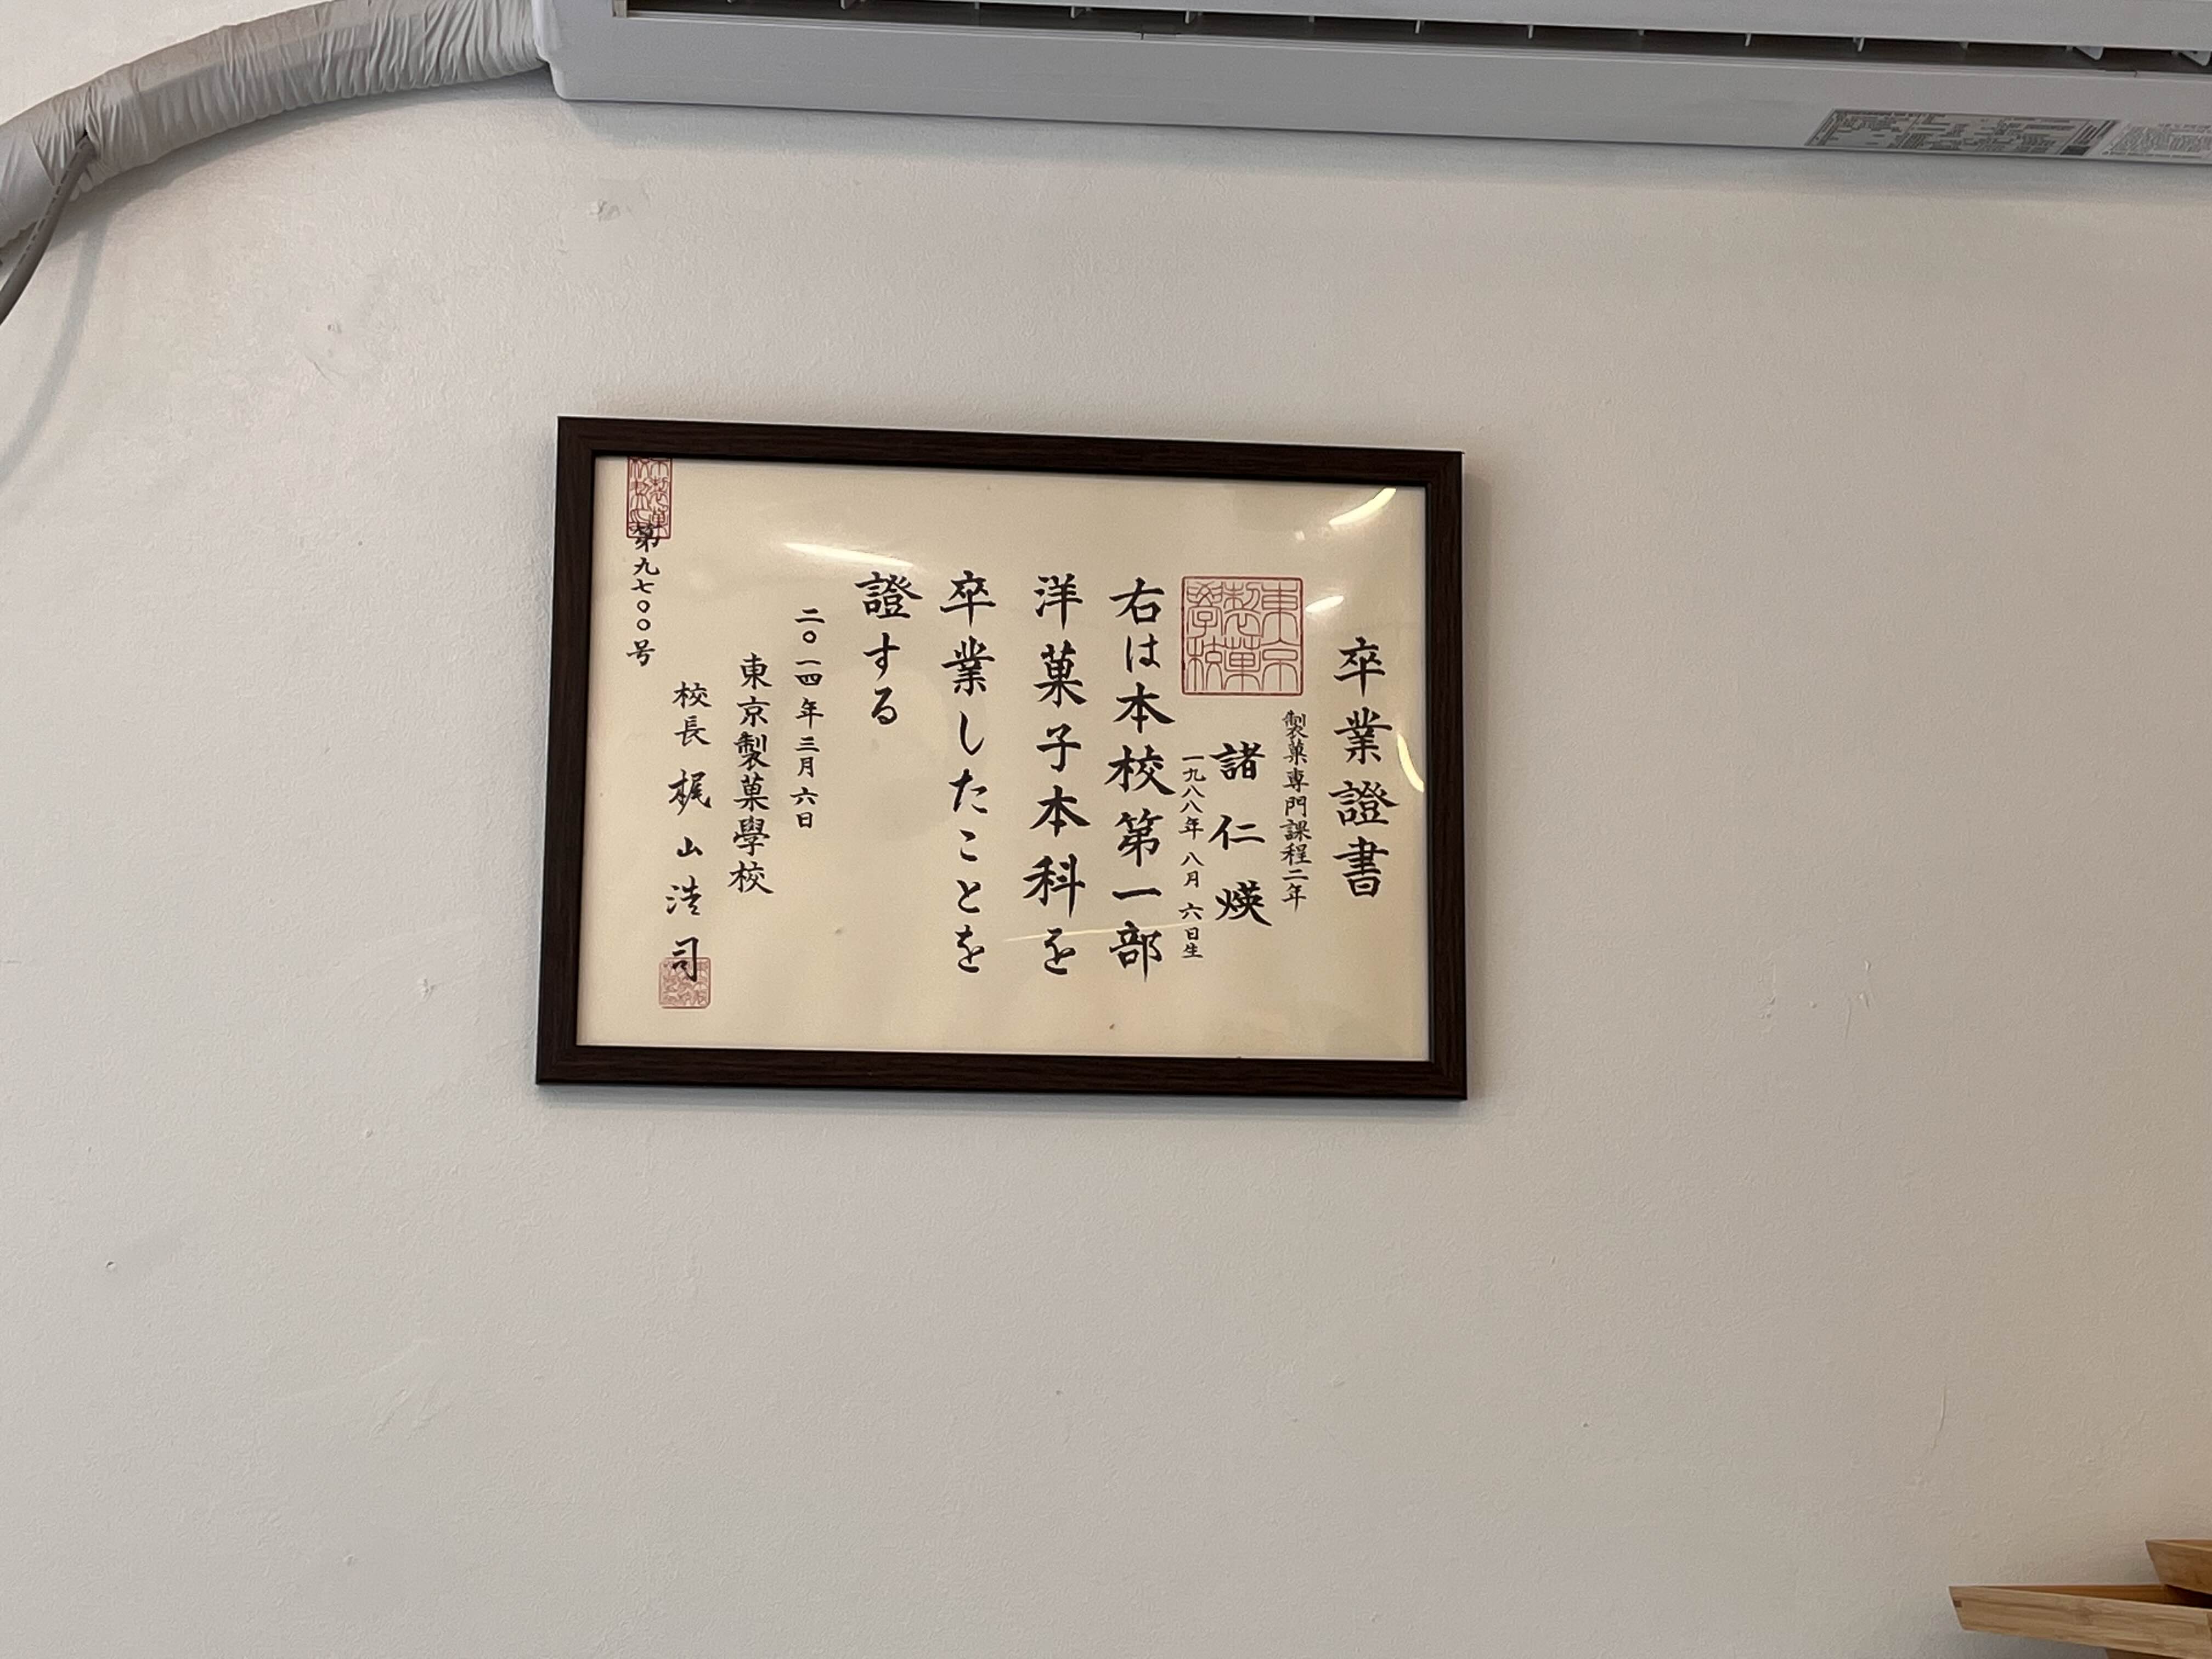 卒業證書
製菓専門課程二年
諸仁煐
一九八八年八月六日生
東京製菓學校
右は本校第一部
洋菓子本科を
卒業したことを
證する
二〇一四年三月六日
東京製菓學校
校長 梶山浩司
第九七〇〇号